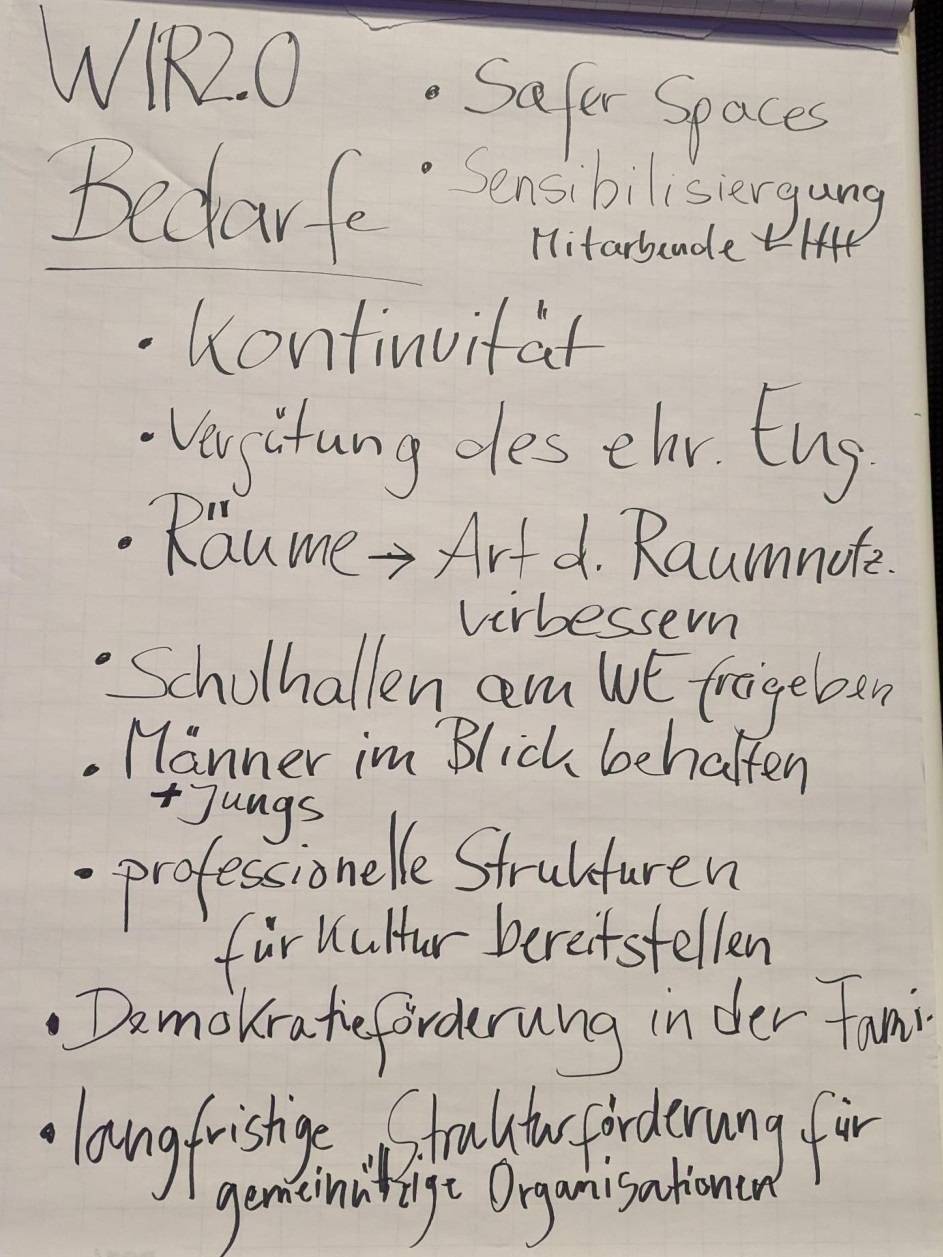 WIR2.0
Bedarfe
• Safer Spaces
• Sensibilisiergung
Mitarbende
• Kontinuität
• Vergütung des ehr. Eng.
• Räume → Art d. Raumnutz.
verbessern
• Schulhallen am WE freigeben
• Männer im Blick behalten
+ Jungs
• professionelle Strukturen
für Kultur bereitstellen
• Demokratieförderung in der Fami.
• langfristige Strukturförderung für
gemeinnützige Organisationen